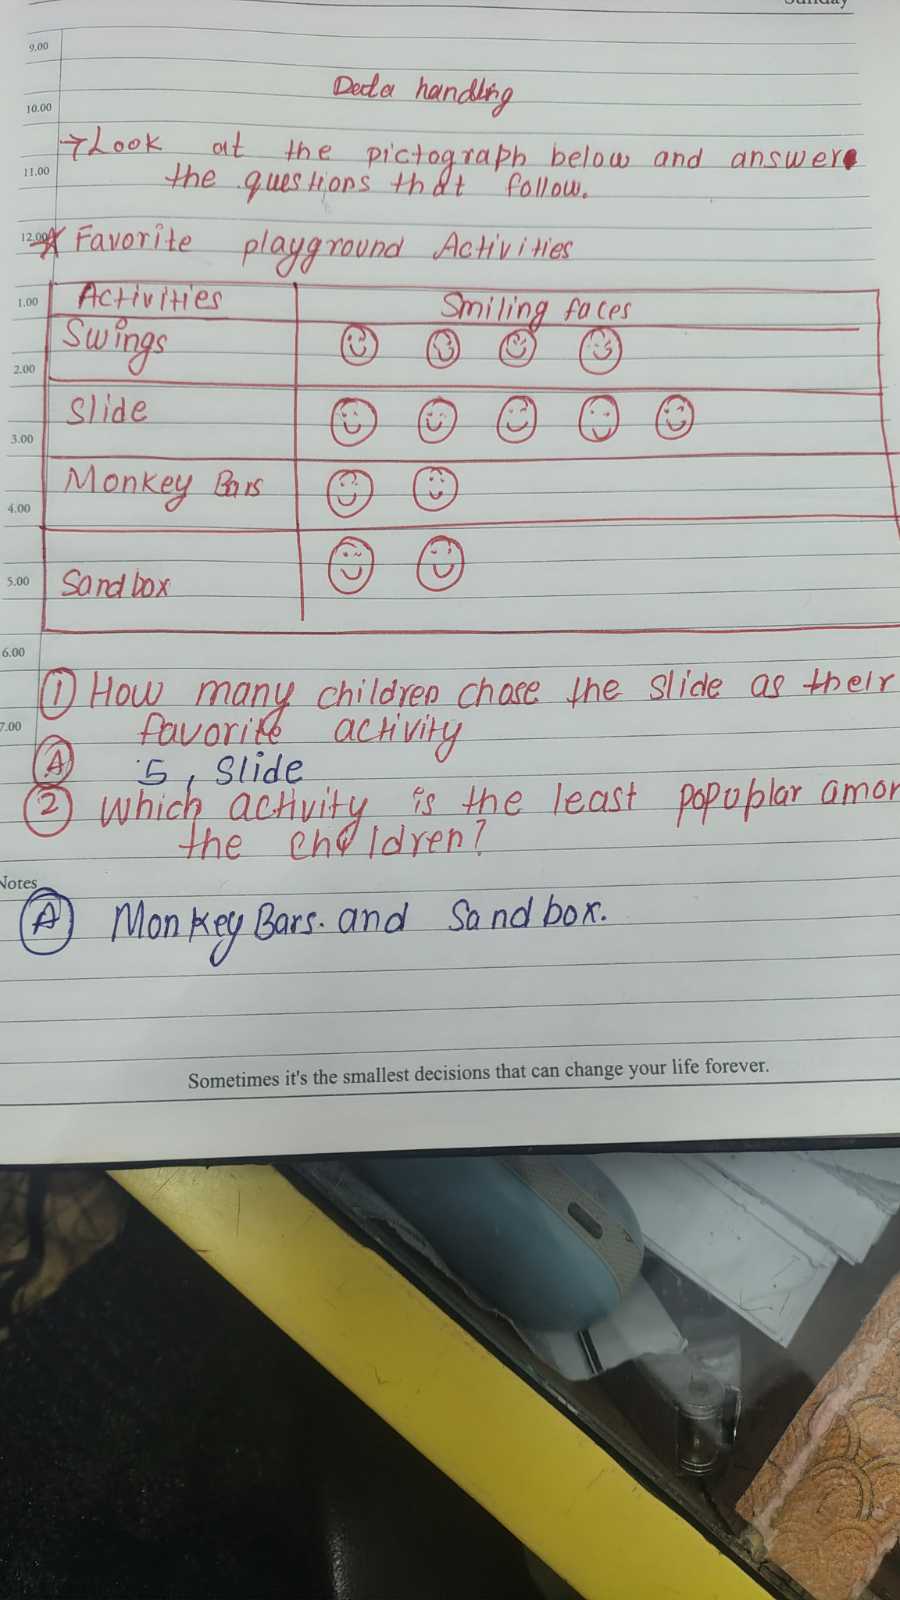 Sunday
9.00
Data handling
10.00
→ Look at the pictograph below and answer
11.00
the questions that follow.
12.00
Favorite playground Activities
1.00
Activities Smiling faces
Swings
2.00
Slide
3.00
Monkey Bars
4.00
Sandbox
5.00
6.00
① How many children chose the slide as their
7.00
favorite activity
Ⓐ 5, Slide
② Which activity is the least popuplar amon
the children?
Notes
Ⓐ Monkey Bars. and Sandbox.
Sometimes it's the smallest decisions that can change your life forever.